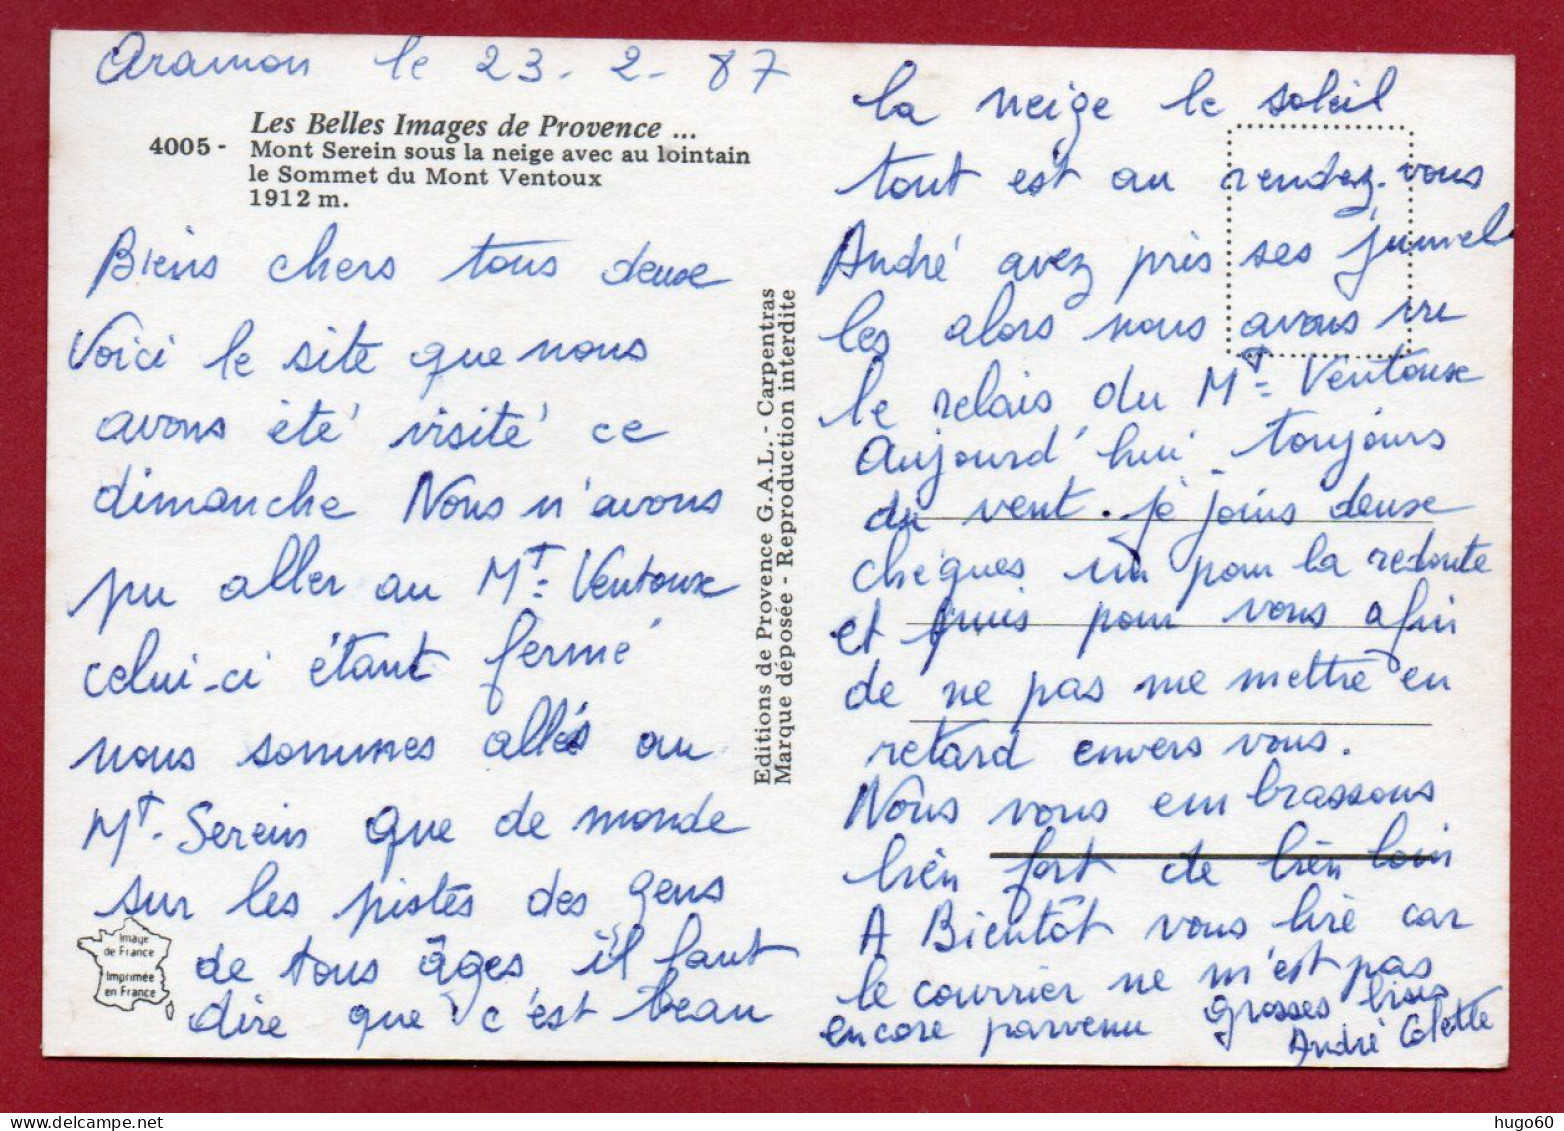 Aramon le 23-2-87
Les Belles Images de Provence ...
4005 - Mont Serein sous la neige avec au lointain
le Sommet du Mont Ventoux
1912 m.
Biens chers tous deux
Voici le site que nous
avons été visité ce
dimanche Nous n'avons
pu aller au MT= Ventoux
celui-ci étant fermé
nous sommes allés au
MT. Serein que de monde
sur les pistes des gens
de tous âges il faut
dire que c'est beau
Image
de France
Imprimée
en France
Editions de Provence G.A.L. - Carpentras
Marque déposée - Reproduction interdite
la neige le soleil
tout est au rendez-vous
André avez pris ses jumel
les alors nous avons vu
le relais du MT= Ventoux
aujourd'hui toujours
du vent. je joins deux
chèques un pour la redoute
et puis pour vous afin
de ne pas me mettre en
retard envers vous.
Nous vous embrassons
bien fort de bien loin
A Bientôt vous lire car
le courrier ne m'est pas
encore parvenu grosses bises
André Colette
hugo60